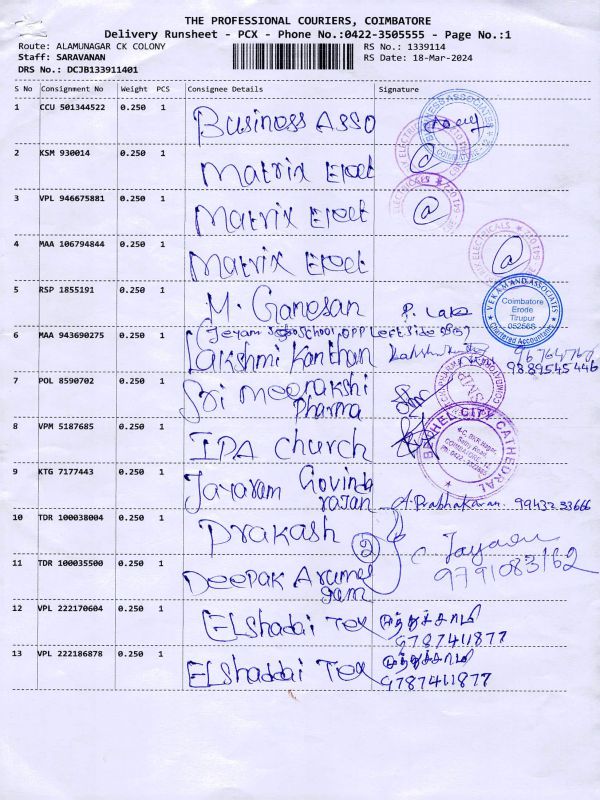 THE PROFESSIONAL COURIERS, COIMBATORE
Delivery Runsheet - PCX - Phone No.:0422-3505555 - Page No.:1
Route: ALAMUNAGAR CK COLONY RS No.: 1339114
Staff: SARAVANAN RS Date: 18-Mar-2024
DRS No.: DCJB133911401
S No Consignment No Weight PCS Consignee Details Signature
1 CCU 501344522 0.250 1 Business Asso
2 KSM 930014 0.250 1 Matrix Elect
3 VPL 946675881 0.250 1 Matrix Elect
4 MAA 106794844 0.250 1 Matrix Elect
5 RSP 1855191 0.250 1 M. Ganesan
VEKAM AND ASSOCIATES
Coimbatore
Erode
Tirupur
Chartered Accountants
6 MAA 943690275 0.250 1 Lakshmi Kanthan
9889545446
7 POL 8590702 0.250 1 Sri Meenakshi
Pharma
8 VPM 5187685 0.250 1 IPA Church
BETHEL CITY CATHEDRAL
9 KTG 7177443 0.250 1 Jayaram Govinda
rajan A. Prabhakaran 9943233666
10 TDR 100038004 0.250 1 Prakash ② Jayaram
9791083162
11 TDR 100035500 0.250 1 Deepak Arumu
gam
12 VPL 222170604 0.250 1 Elshadai Tex முத்துச்சாமி
9787411877
13 VPL 222186878 0.250 1 Elshaddai Tex முத்துச்சாமி
9787411877